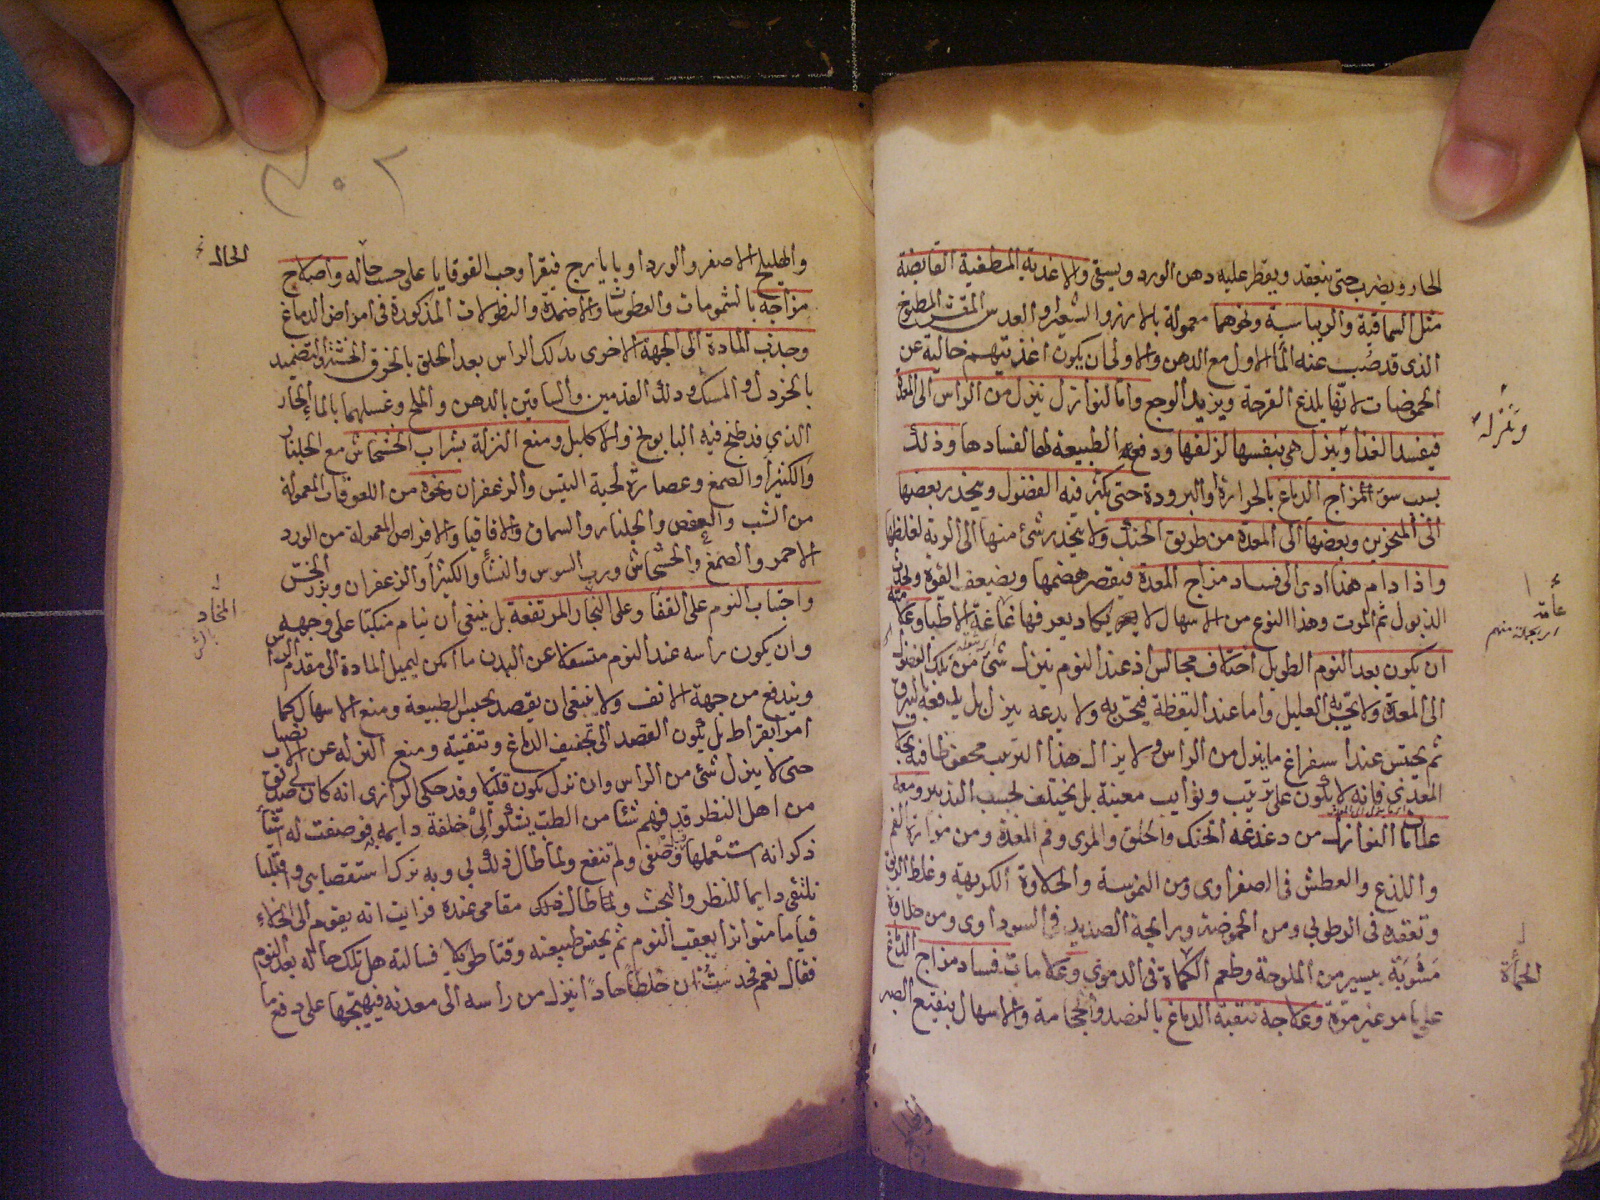 الحار ويضرب حتى ينعقد ويقطر عليه دهن الورد ويسقى والاغذية المطفية القابضة
مثل السماقية والريباسية ونحوهما معمولة بالارز والشعير والعدس المقشر المطبوخ
الذى قد صب عنه الماء الاول مع الدهن والاولى ان يكون اغذيتهم خالية عن
الحموضات لانها يلذع القرحة ويزيد الوجع واما النوازل ينزل من الراس الى المعدة
فيفسد الغذا وينزل هى بنفسها لزلقها ودفع الطبيعة لها لفسادها وذلك
بسبب سوء المزاج الدماغ بالحرارة او البرودة حتى يكثر فيه الفضول وينحدر بعضها
الى المنخرين وبعضها الى المعدة من طريق الحنك ولا ينحدر شئ منها الى الرية لغلظها
واذا دام هذا ادى الى فساد مزاج المعدة فيقصر هضمها ويضعف القوة ويحدث
الذبول ثم الموت وهذا النوع من الاسهال لا يكاد يعرفها غاغة الاطبا وعلامته
ان يكون بعد النوم الطويل اختلاف مجالس اذ عند النوم ينزل شئ من تلك الفضول
الى المعدة ولا يحس به العليل واما عند اليقظة فيحس به ولا يدعه ينزل بل يدفعه بالبزق
ثم يحتبس عند استفراغ ما ينزل من الراس ولا يزال هذا الترتيب محفوظا فيه بخلاف
المعدى فانه لا يكون على ترتيب ونوايب معينة بل يختلف بحسب التدبير ومعه
علامات النوازل من دغدغة الحنك والحلق والمرى وفم المعدة ومن مرارة الفم
واللذع والعطش فى الصفراوى ومن التفه والحلاوة الكريهة وغلظ الريق
وتعقده فى الرطوبى ومن الحموضة ورايحة الصديد فى السوداوى ومن حلاوة
مشوبة بيسير من الملوحة وطعم الحماة فى الدموى وعلامات فساد مزاج الدماغ
على ما مر غير مرة وعلاجه تنقية الدماغ بالفصد والحجامة والاسهال بنقيع الصبر
ونزلة
الحمأة
والهليلج الاصفر والورد او بايارج فيقرا وحب القوقايا على حسب حاله واصلاح
الحال
مزاجه بالشمومات والعطوسات والاضمدة والنطولات المذكورة فى امراض الدماغ
وجذب المادة الى الجهة الاخرى بدلك الراس بعد الحلق بالخرق الخشنة والتضميد
بالخردل والمسك ودلك القدمين والساقين بالدهن والملح وغسلهما بالماء الحار
الذى قد طبخ فيه البابونج والاكليل ومنع النزلة بشراب الخشخاش مع الجلنار
والكثيرا والصمغ وعصارة لحية التيس والزعفران ونحوه من اللعوقات المعمولة
من الشب والعفص والجلنار والسماق والاقاقيا والاقراص المعمولة من الورد
الاحمر والصمغ والخشخاش ورب السوس والنشا والكثيرا والزعفران وبزر الخس
واجتناب النوم على القفا وعلى المرتفعة بل ينبغى ان ينام منكبا على وجهه
وان يكون راسه عند النوم متسفلا عن البدن ما امكن ليميل المادة الى مقدم الراس
ويندفع من جهة الانف ولا ينبغى ان يقصد بحبس الطبيعة ومنع الاسهال كما
امر ابقراط بل يكون القصد الى تجفيف الدماغ وتنقيته ومنع النزلة عن الانصباب
حتى لا ينزل شئ من الراس وان نزل يكون قليلا وقد حكى الرازى انه كان صديق لى
من اهل النظر قد فهم شئا من الطب يشكو الى خلفة دايمة فوصفت له اشياء
ذكر انه استعملها ولم تنفع ولما طال ذلك بى وبه ترك استقصايى وقبلنا
نلتقى دايما للنظر والبحث ولما طال ذلك مقامى عنده فرايت انه يقوم الى الخلاء
قياما متواترا بعقيب النوم ثم يحتبس طبيعته وقتا طويلا فسالته هل تلك حاله بعد النوم
فقال نعم فحدست ان خلطا حادا ينزل من راسه الى معدته فيهيجها على دفع ما